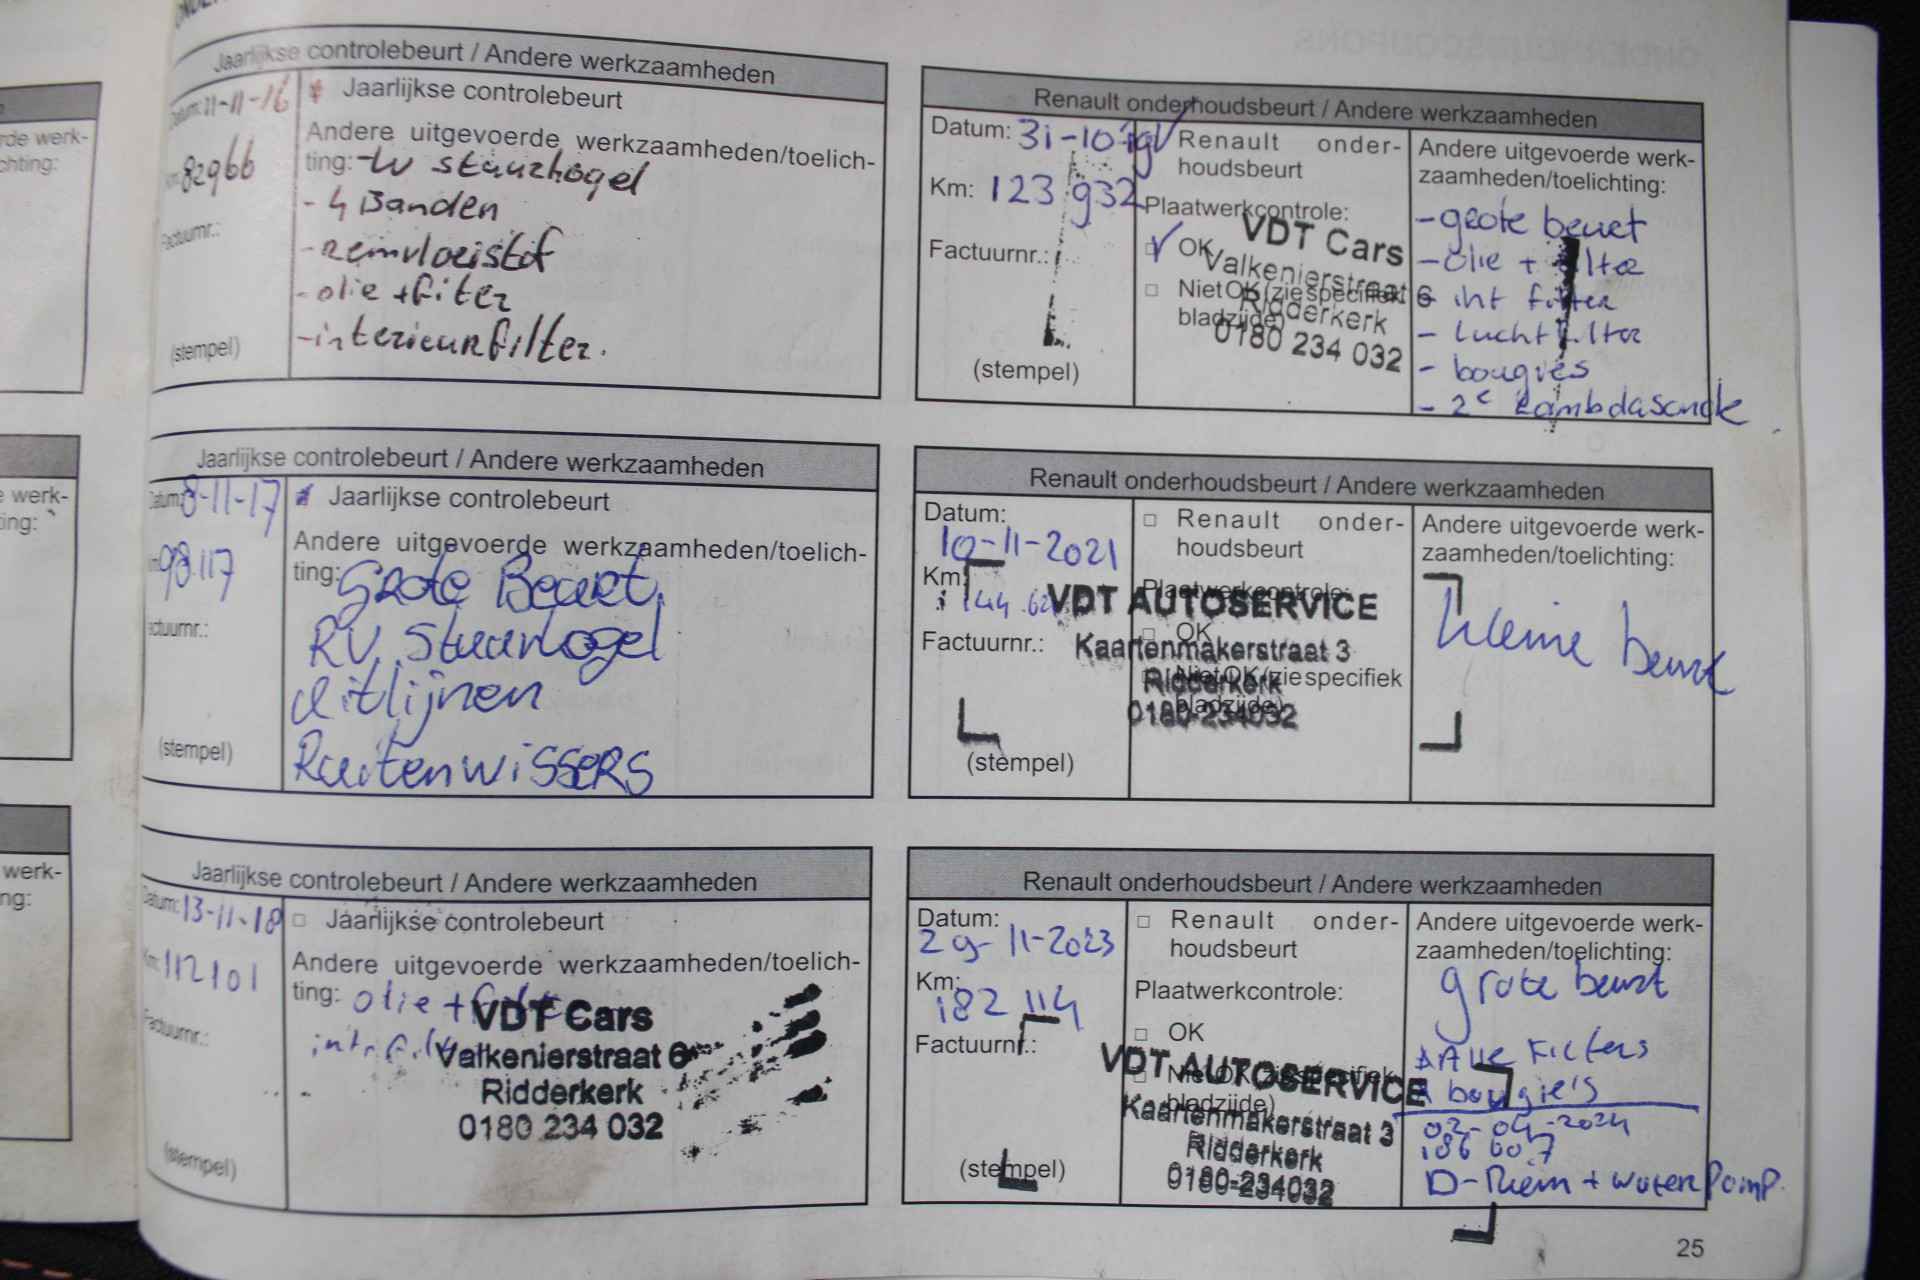 Jaarlijkse controlebeurt / Andere werkzaamheden
Datum: 11-11-16
Jaarlijkse controlebeurt
82966
Andere uitgevoerde werkzaamheden/toelich-
ting:
- 4 Banden
- remvloeistof
- olie + filter
- interieurfilter.
Factuurnr.:
(stempel)
Jaarlijkse controlebeurt / Andere werkzaamheden
Datum: 8-11-17
Jaarlijkse controlebeurt
98.117
Andere uitgevoerde werkzaamheden/toelich-
ting: Grote Beurt,
RV. Stuurkogel
Uitlijnen
RuitenwiSSeRS
(stempel)
Jaarlijkse controlebeurt / Andere werkzaamheden
Datum: 13-11-18
Jaarlijkse controlebeurt
Km: 112101
Andere uitgevoerde werkzaamheden/toelich-
ting: olie +
VDT Cars
Valkenierstraat 6
Ridderkerk
0180 234 032
Factuurnr.:
(stempel)
Renault onderhoudsbeurt / Andere werkzaamheden
Datum: 31-10-19
Km: 123 932
Factuurnr.:
(stempel)
Renault onder-
houdsbeurt
Plaatwerkcontrole:
OK
Niet OK (zie specifiek
bladzijde)
VDT Cars
Valkenierstraat 6
Ridderkerk
0180 234 032
Andere uitgevoerde werk-
zaamheden/toelichting:
- grote beurt
- olie + filter
- int filter
- luchtfilter
- bougies
- 2e Lambdasonde
Renault onderhoudsbeurt / Andere werkzaamheden
Datum:
10-11-2021
Km:
Factuurnr.:
(stempel)
Renault onder-
houdsbeurt
Plaatwerkcontrole:
OK
Niet OK (zie specifiek
bladzijde)
VDT AUTOSERVICE
Kaartenmakerstraat 3
Ridderkerk
0180-234032
Andere uitgevoerde werk-
zaamheden/toelichting:
kleine beurt
Renault onderhoudsbeurt / Andere werkzaamheden
Datum:
29-11-2023
Km:
182 114
Factuurnr.:
(stempel)
Renault onder-
houdsbeurt
Plaatwerkcontrole:
OK
Niet OK (zie specifiek
bladzijde)
VDT AUTOSERVICE
Kaartenmakerstraat 3
Ridderkerk
0180-234032
Andere uitgevoerde werk-
zaamheden/toelichting:
grote beurt
Alle Filters
bougie's
02-04-2024
186 607
D-Riem + waterpomp.
25